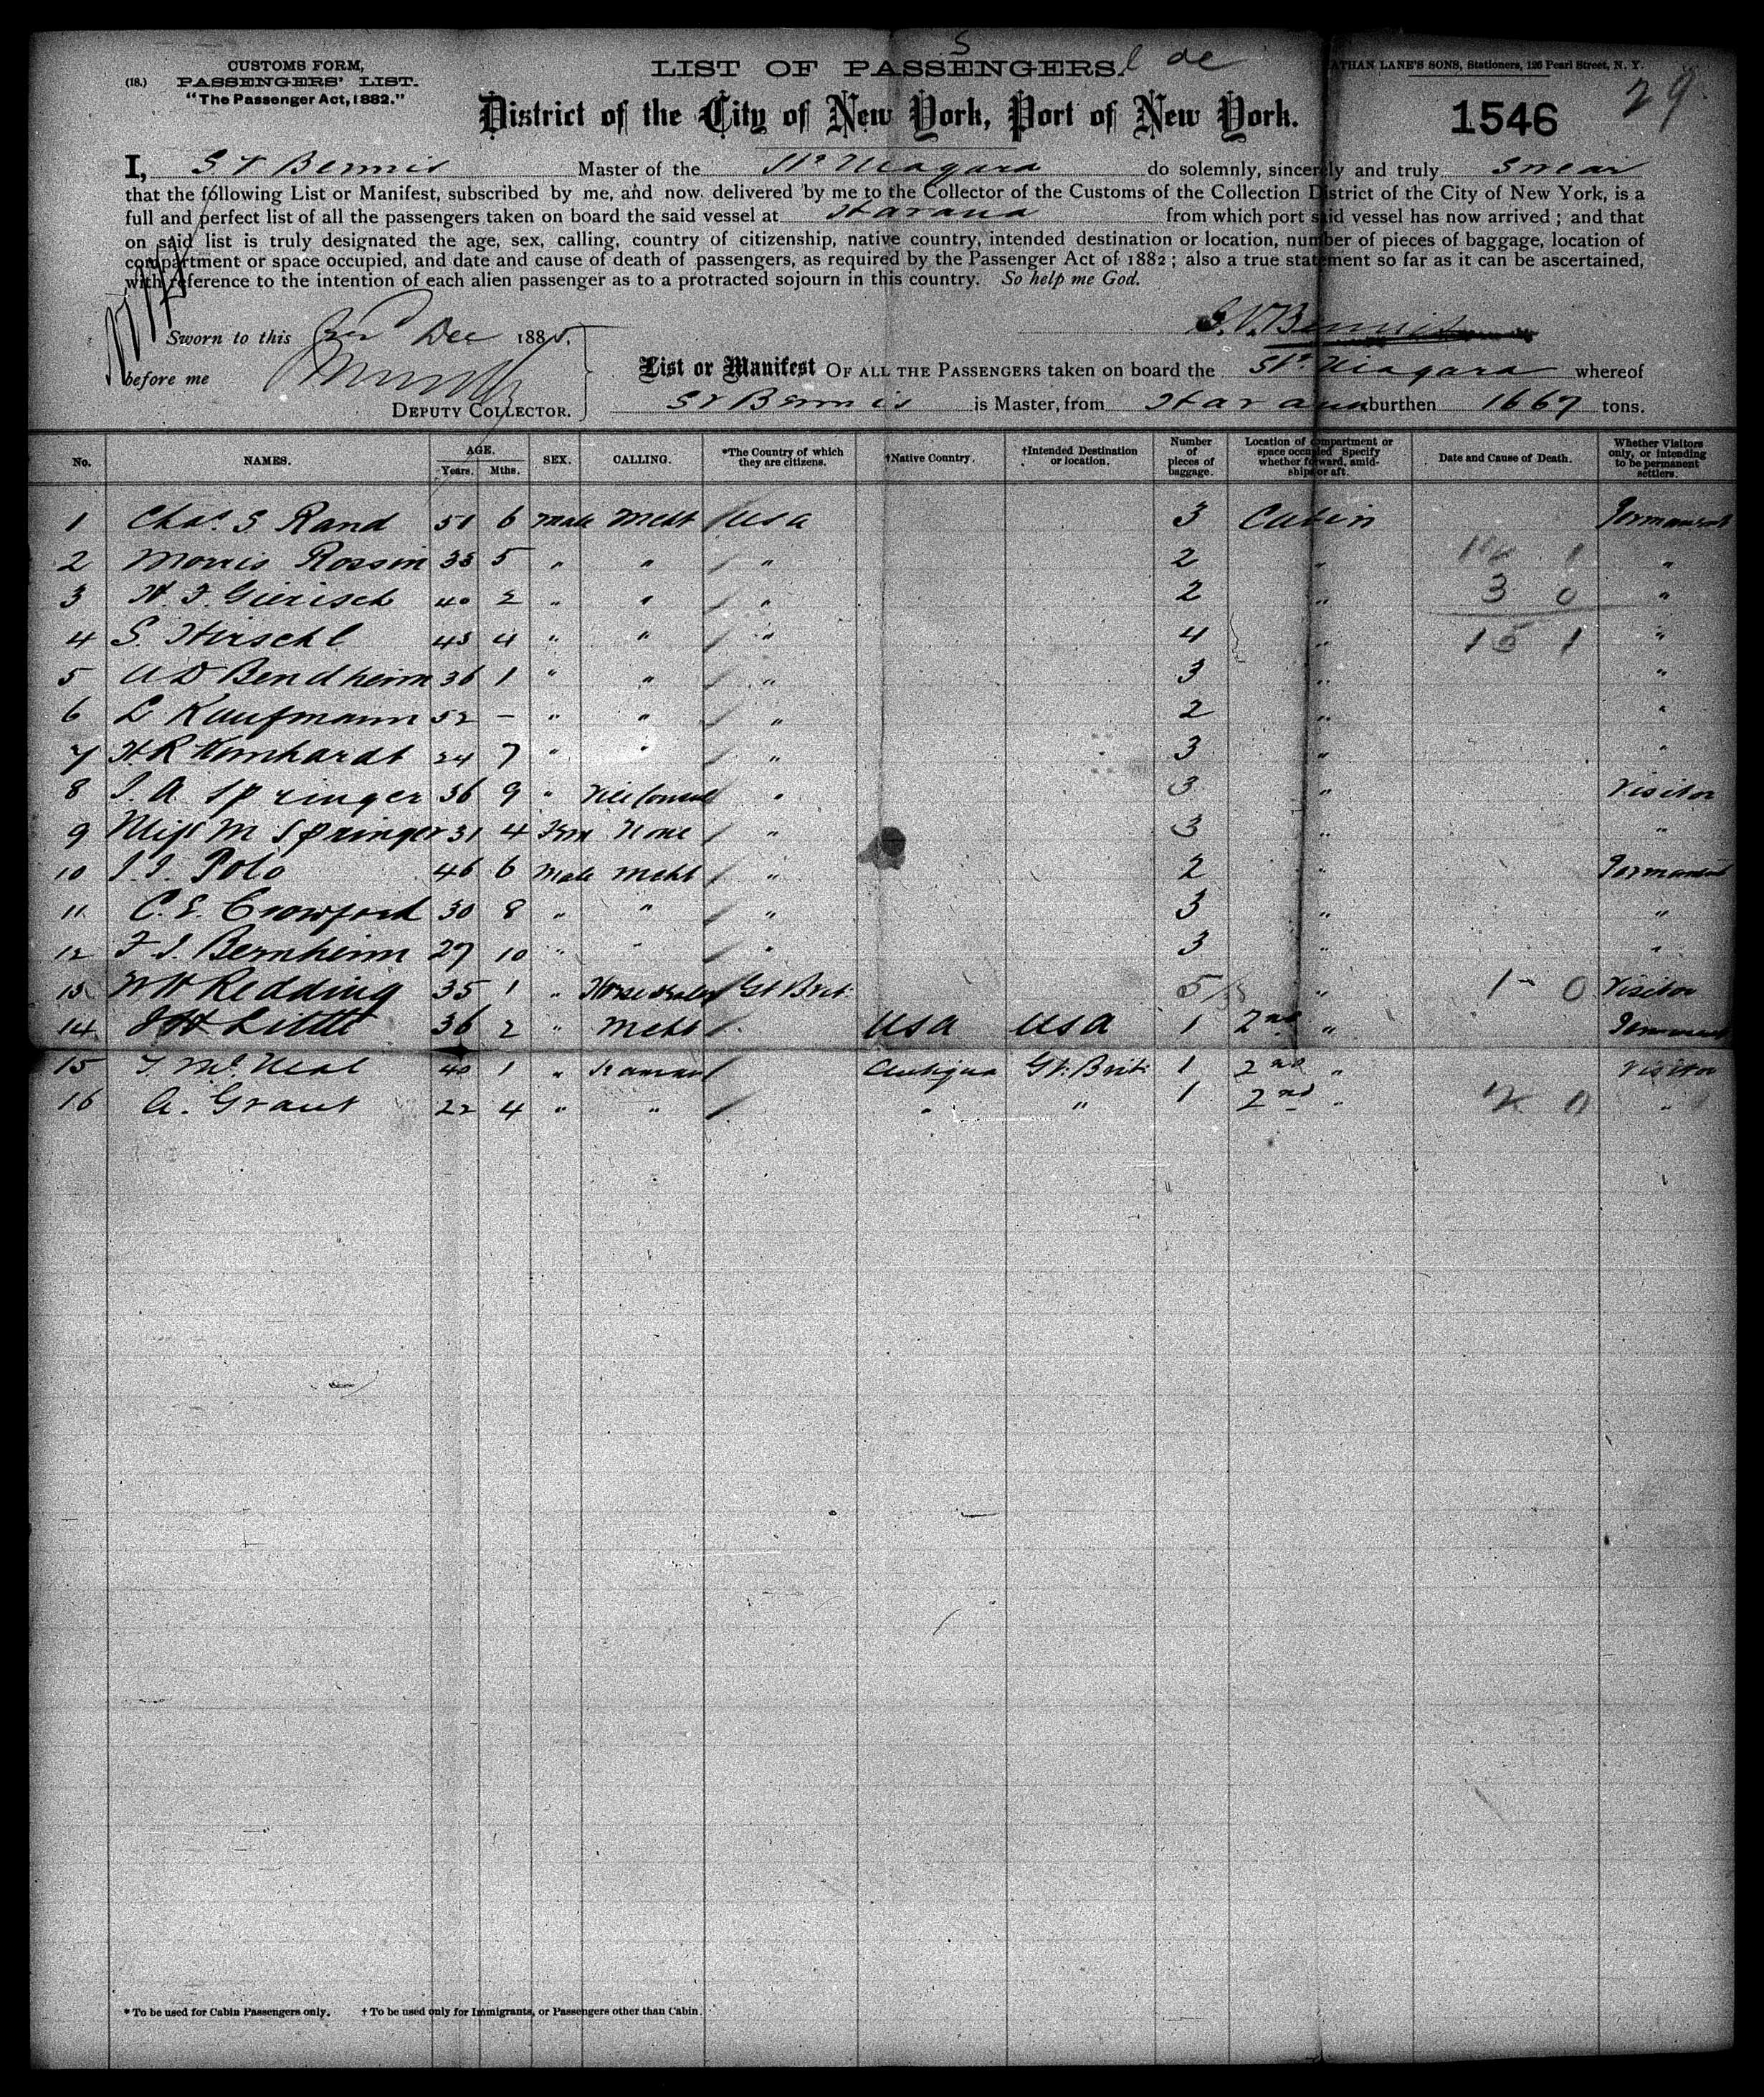 (18.)
CUSTOMS FORM,
PASSENGERS' LIST.
"The Passenger Act, 1882."
LIST OF PASSENGERS.
NATHAN LANE'S SONS, Stationers, 126 Pearl Street, N. Y.
29
District of the City of New York, Port of New York.
1546
I, S V Bennis Master of the Str Niagara do solemnly, sincerely and truly swear
that the following List or Manifest, subscribed by me, and now delivered by me to the Collector of the Customs of the Collection District of the City of New York, is a
full and perfect list of all the passengers taken on board the said vessel at Havana from which port said vessel has now arrived; and that
on said list is truly designated the age, sex, calling, country of citizenship, native country, intended destination or location, number of pieces of baggage, location of
compartment or space occupied, and date and cause of death of passengers, as required by the Passenger Act of 1882; also a true statement so far as it can be ascertained,
with reference to the intention of each alien passenger as to a protracted sojourn in this country. So help me God.
S. V. Bennis
Sworn to this Dec 1885.
before me
DEPUTY COLLECTOR.
List or Manifest OF ALL THE PASSENGERS taken on board the Str. Niagara whereof
S V Bennis is Master, from Havana burthen 1667 tons.
No. NAMES. AGE. Years. Mths. SEX. CALLING. *The Country of which they are citizens. †Native Country. †Intended Destination or location. Number of pieces of baggage. Location of compartment or space occupied Specify whether forward, amidships or aft. Date and Cause of Death. Whether Visitors only, or intending to be permanent settlers.
1 Chas. S. Rand 51 6 Male Mcht USA 3 Cabin Permanent
2 Morris Rossin 33 5 " " " 2 " "
3 H. F. Gierisch 40 2 " " " 2 " 3 0 "
4 S. Hirschl 43 4 " " " 4 " 15 1 "
5 A D Bendheim 36 1 " " " 3 " "
6 L Kaufmann 52 – " " " 2 " "
7 H R 24 7 " " " 3 " "
8 J. A. Springer 36 9 " Vice Consul " 3 " Visitor
9 Miss M Springer 31 4 Fem None " 3 " "
10 J. J. Polo 46 6 Male Mcht " 2 " Permanent
11 C. E. Crowford 30 8 " " " 3 " "
12 F. J. Bernheim 27 10 " " " 3 " "
13 W H Redding 35 1 " Gt Brit. 5 " 1 0 Visitor
14 J H Little 36 2 " Mcht USA USA 1 2nd " Permanent
15 T. Mc Neal 40 1 " Antigua Gt. Brit. 1 2nd " Visitor
16 A. Grant 22 4 " " " " 1 2nd " 2 0 "
* To be used for Cabin Passengers only. † To be used only for Immigrants, or Passengers other than Cabin.